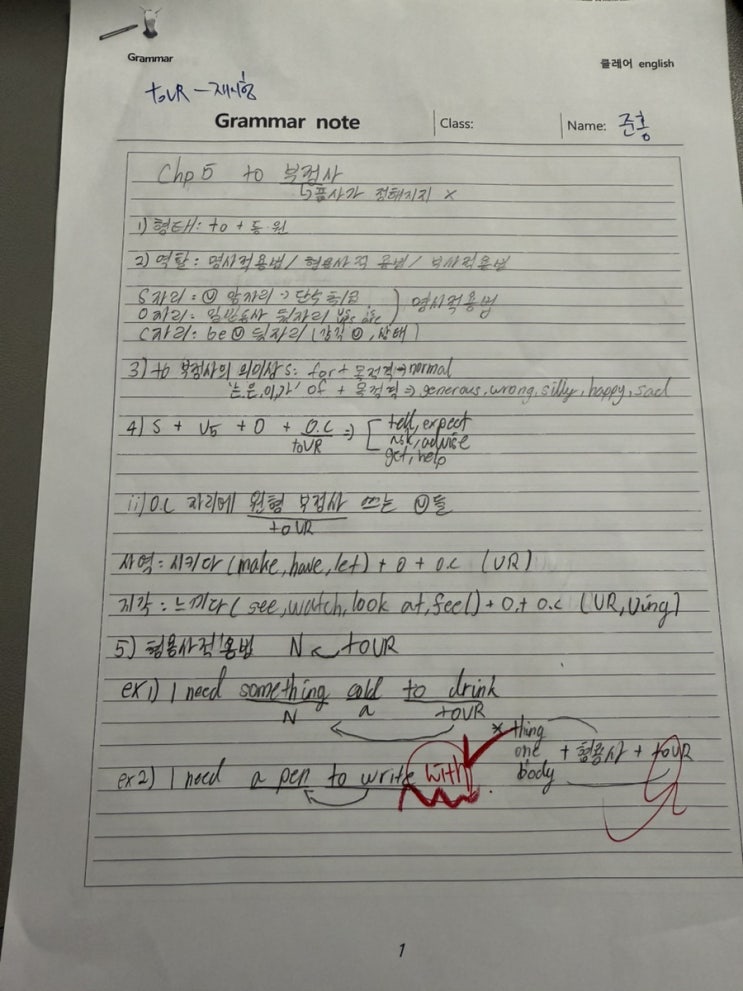 Grammar
클레어 english
toVR - 재시험
Grammar note
Class:
Name: 준홍
Chp 5 to 부정사
↳품사가 정해지지 X
1) 형태: to + 동·원
2) 역할: 명사적용법 / 형용사적 용법 / 부사적용법
S자리: ⓥ 앞자리 : 단수취급 ) 명사적용법
O자리: 일반동사 뒷자리
C자리: be ⓥ 뒷자리 (감각 ⓥ, 상태)
3) to 부정사의 의미상 S: for + 목적격 → normal
'는,은,이,가' of + 목적격 ⇒ generous, wrong, silly, happy, sad
4) S + V5 + O + O.C ⇒ [ tell, expect
toVR ask, advise
get, help
ii) O.C 자리에 원형 부정사 쓰는 ⓥ들
toVR
사역: 시키다 (make, have, let) + O + O.C (VR)
지각: 느끼다 (see, watch, look at, feel) + O + O.C (VR, Ving)
5) 형용사적 용법 N toVR
ex1) I need something cold to drink
N a toVR
* thing
one + 형용사 + toVR
body
ex2) I need a pen to write with.
1